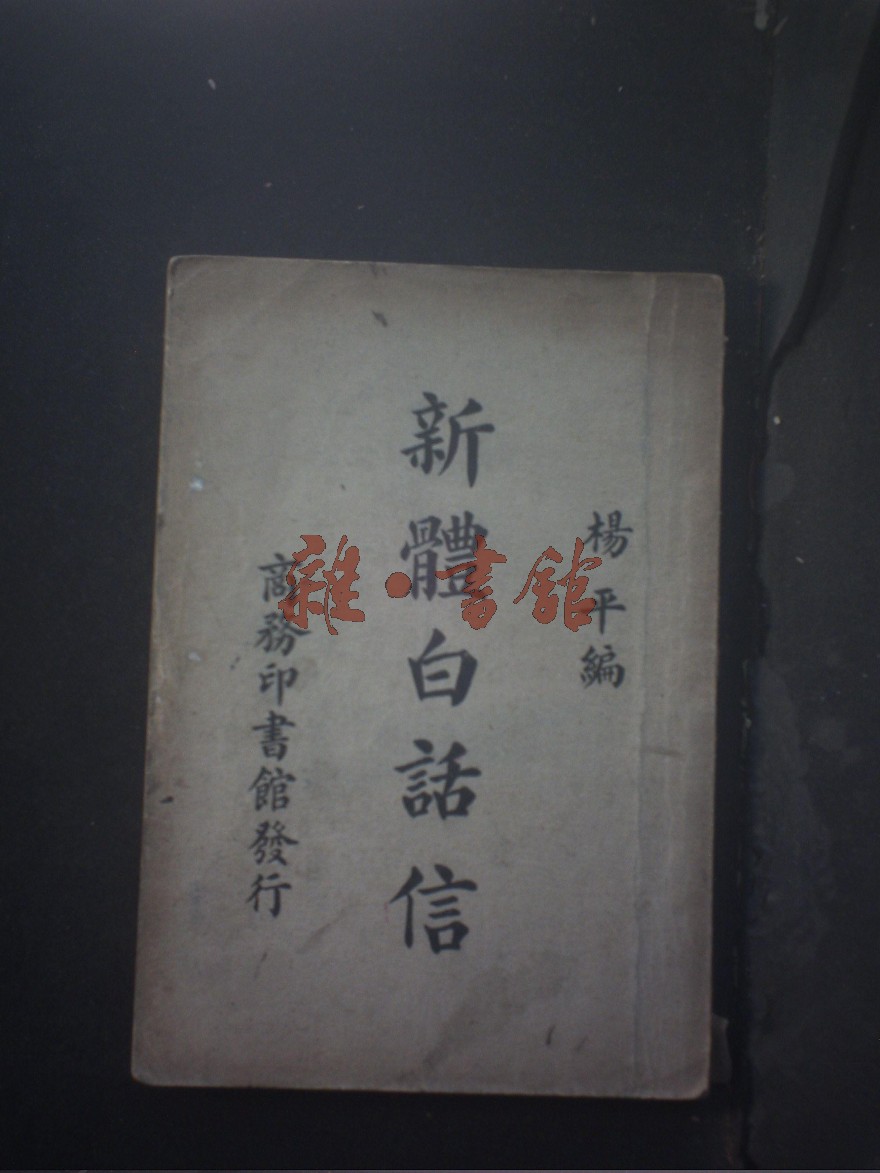 楊平編
新體白話信
商務印書館發行
雜·書館